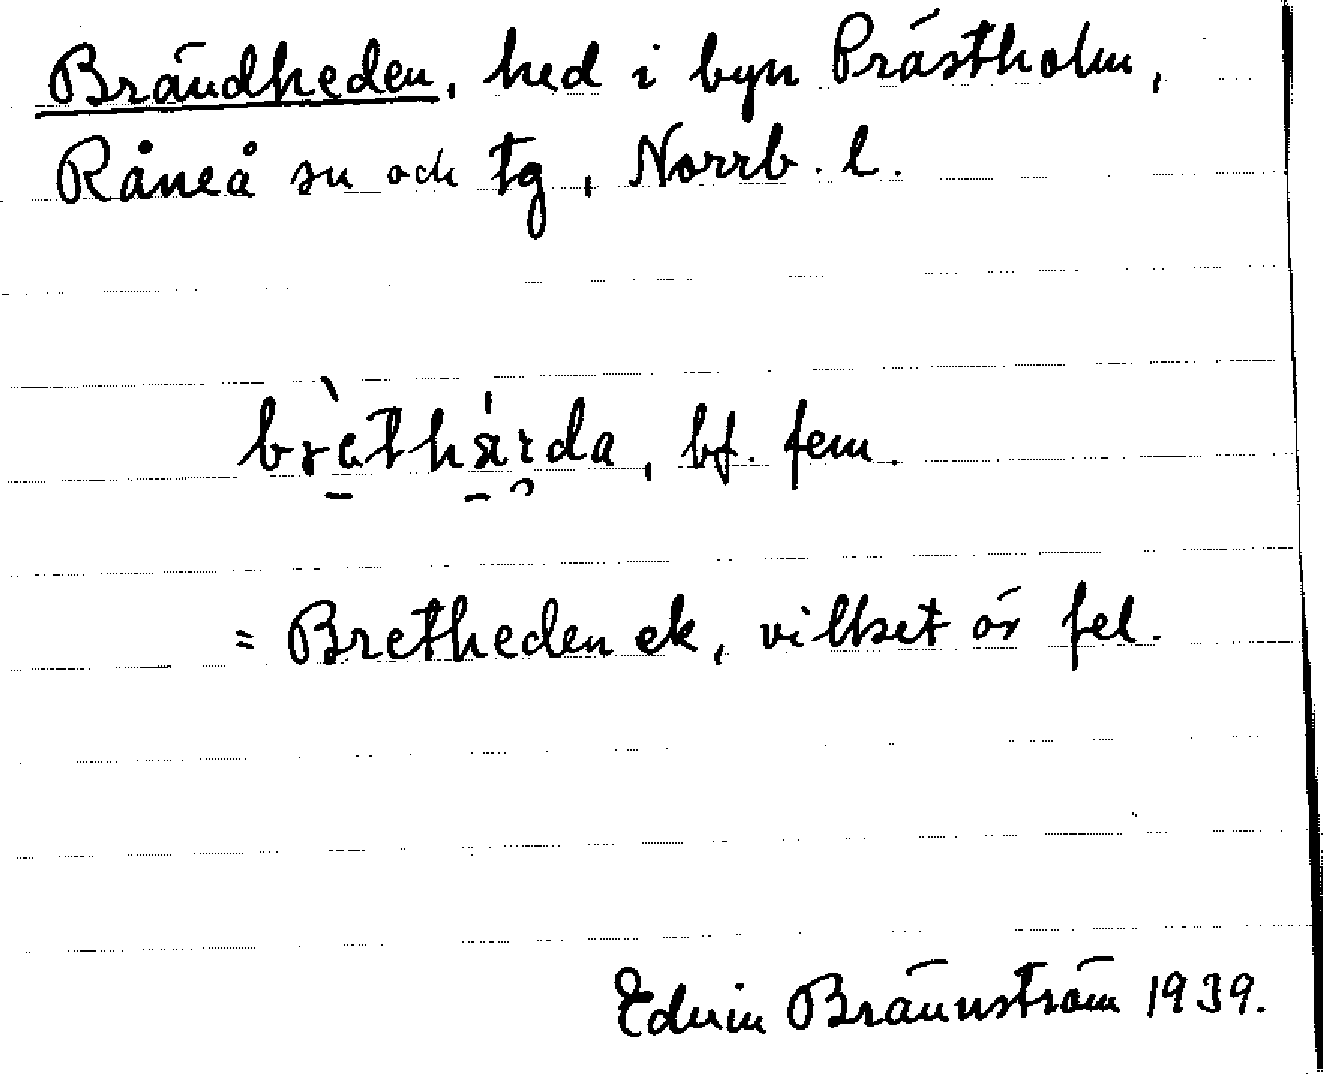 Brändheden, hed i byn Prästholm,
Råneå sn och tg, Norrb. l.
bràthárda, bf. fem.
= Bretheden ek, vilket är fel.
Edvin Brännström 1939.